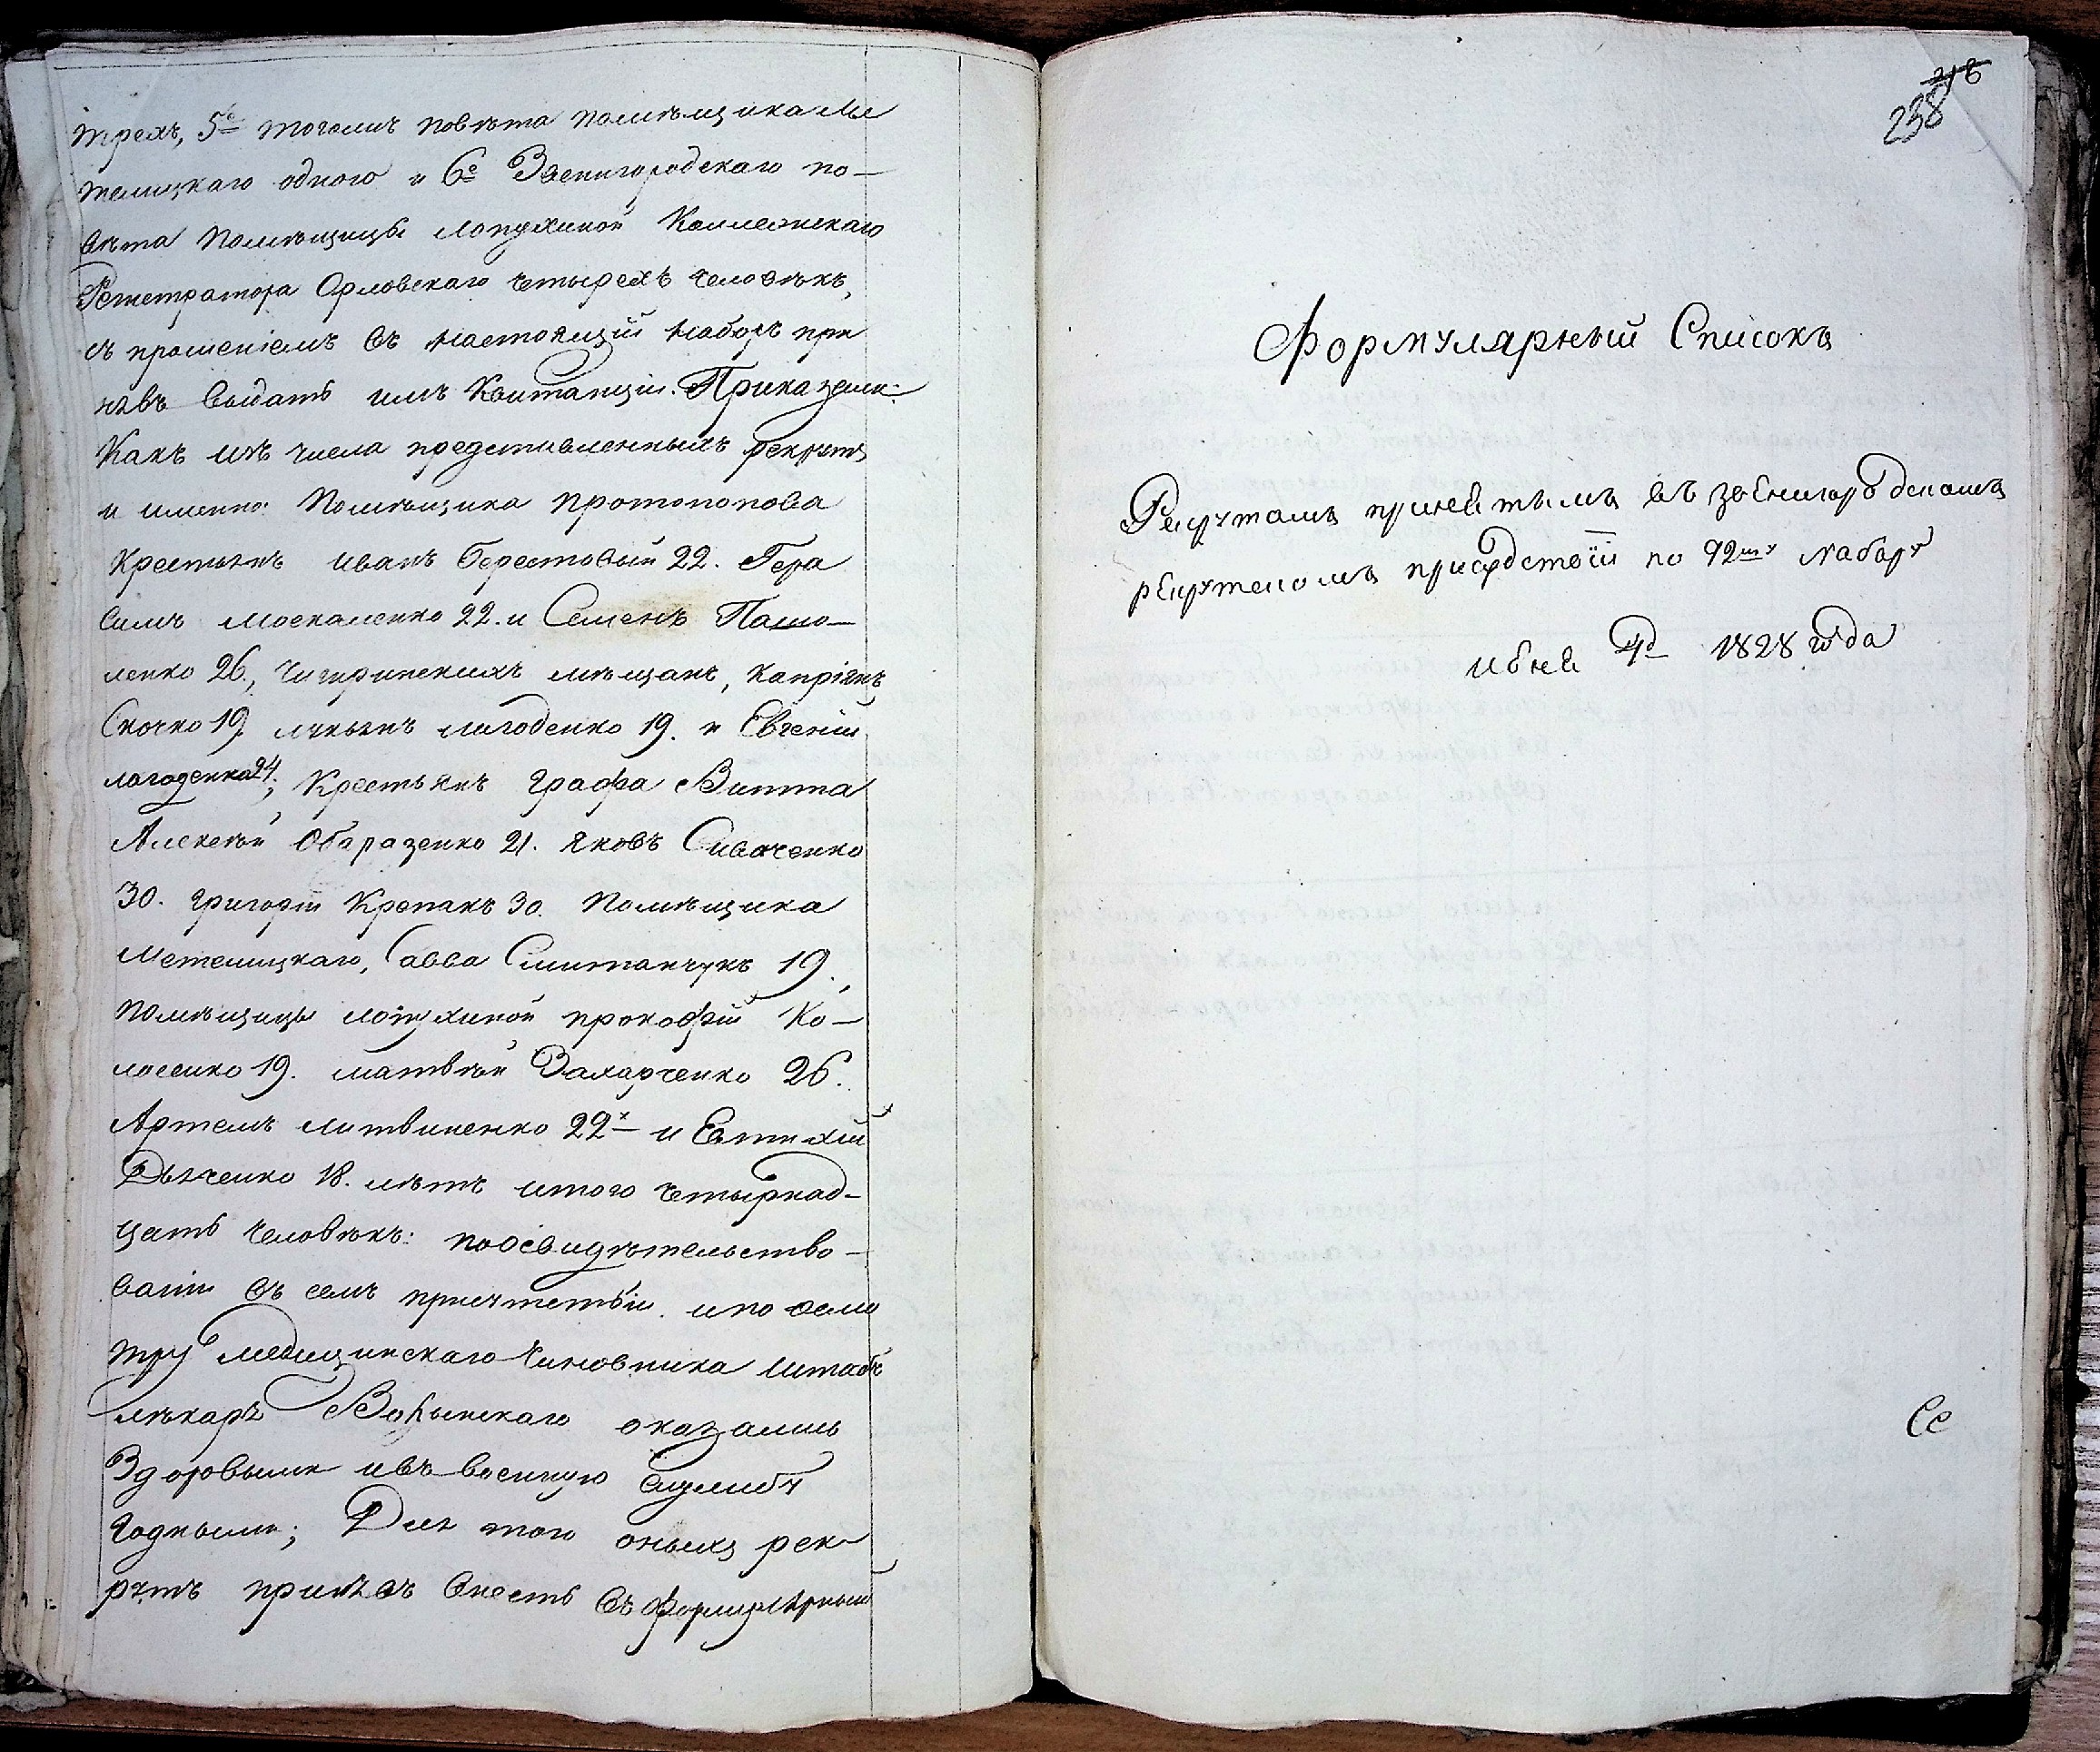 трехъ, 5е тогомъ повѣта помѣщика Ме
телицкаго одного и 6е Звенигородскаго по–
вѣта Помѣщицы Лопухиной Коллежскаго
Регистратора Орловскаго четырехъ человѣкъ,
съ прошеніемъ въ настоящій наборъ при
нявъ выдать имъ Квитанціи. Приказали:
Какъ изъ числа представленныхъ рекрутъ
и именно: Помѣщика Протопопова
Крестьянъ Иванъ Берестовый 22. Гера
симъ Москаленко 22. и Семенъ
ленко 26., Чигиринскихъ мѣщанъ,
Скочко 19. 19. и Евгеній
24; Крестьянъ Графа Витта
Алексѣй 21. Яковъ Сиваченко
30. Григорій Крепакъ 30. Помѣщика
Метелицкаго, Савва Смитанчукъ 19.,
Помѣщицы Лопухиной Прокофій Ко–
лосенко 19. Матвѣй Захарченко 26.
Артемъ Литвиненко 22х и Евтихій
Дьяченко 18. лѣтъ итого четырнад–
цать человѣкъ: поосвидѣтельство–
ваніи въ семъ присутствіи и по осмо
тру Медицинскаго Чиновника Штабъ
лѣкаря Волынскаго оказались
Здоровыми и въ военную службу
годными; Для того оныхъ рек–
рутъ принявъ внесть въ формулярный
218
238
Формулярный Списокъ
Рекрутамъ принятымъ въ Звенигородскомъ
рекрутскомъ присудствіи по 92му набору
июня 4д 1828 года
Сс